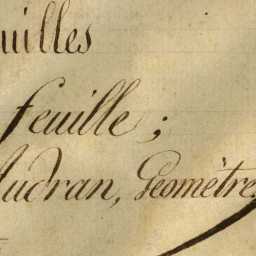 uilles
feuille;
Audran, Géomètre